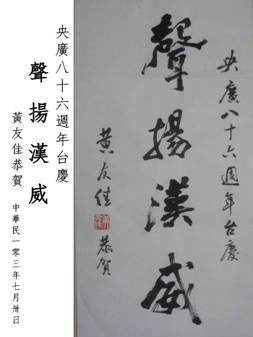 央廣八十六週年台慶
聲揚漢威
黃友佳恭賀
央廣八十六週年台慶
聲揚漢威
黃友佳恭賀
中華民一零三年七月卅日